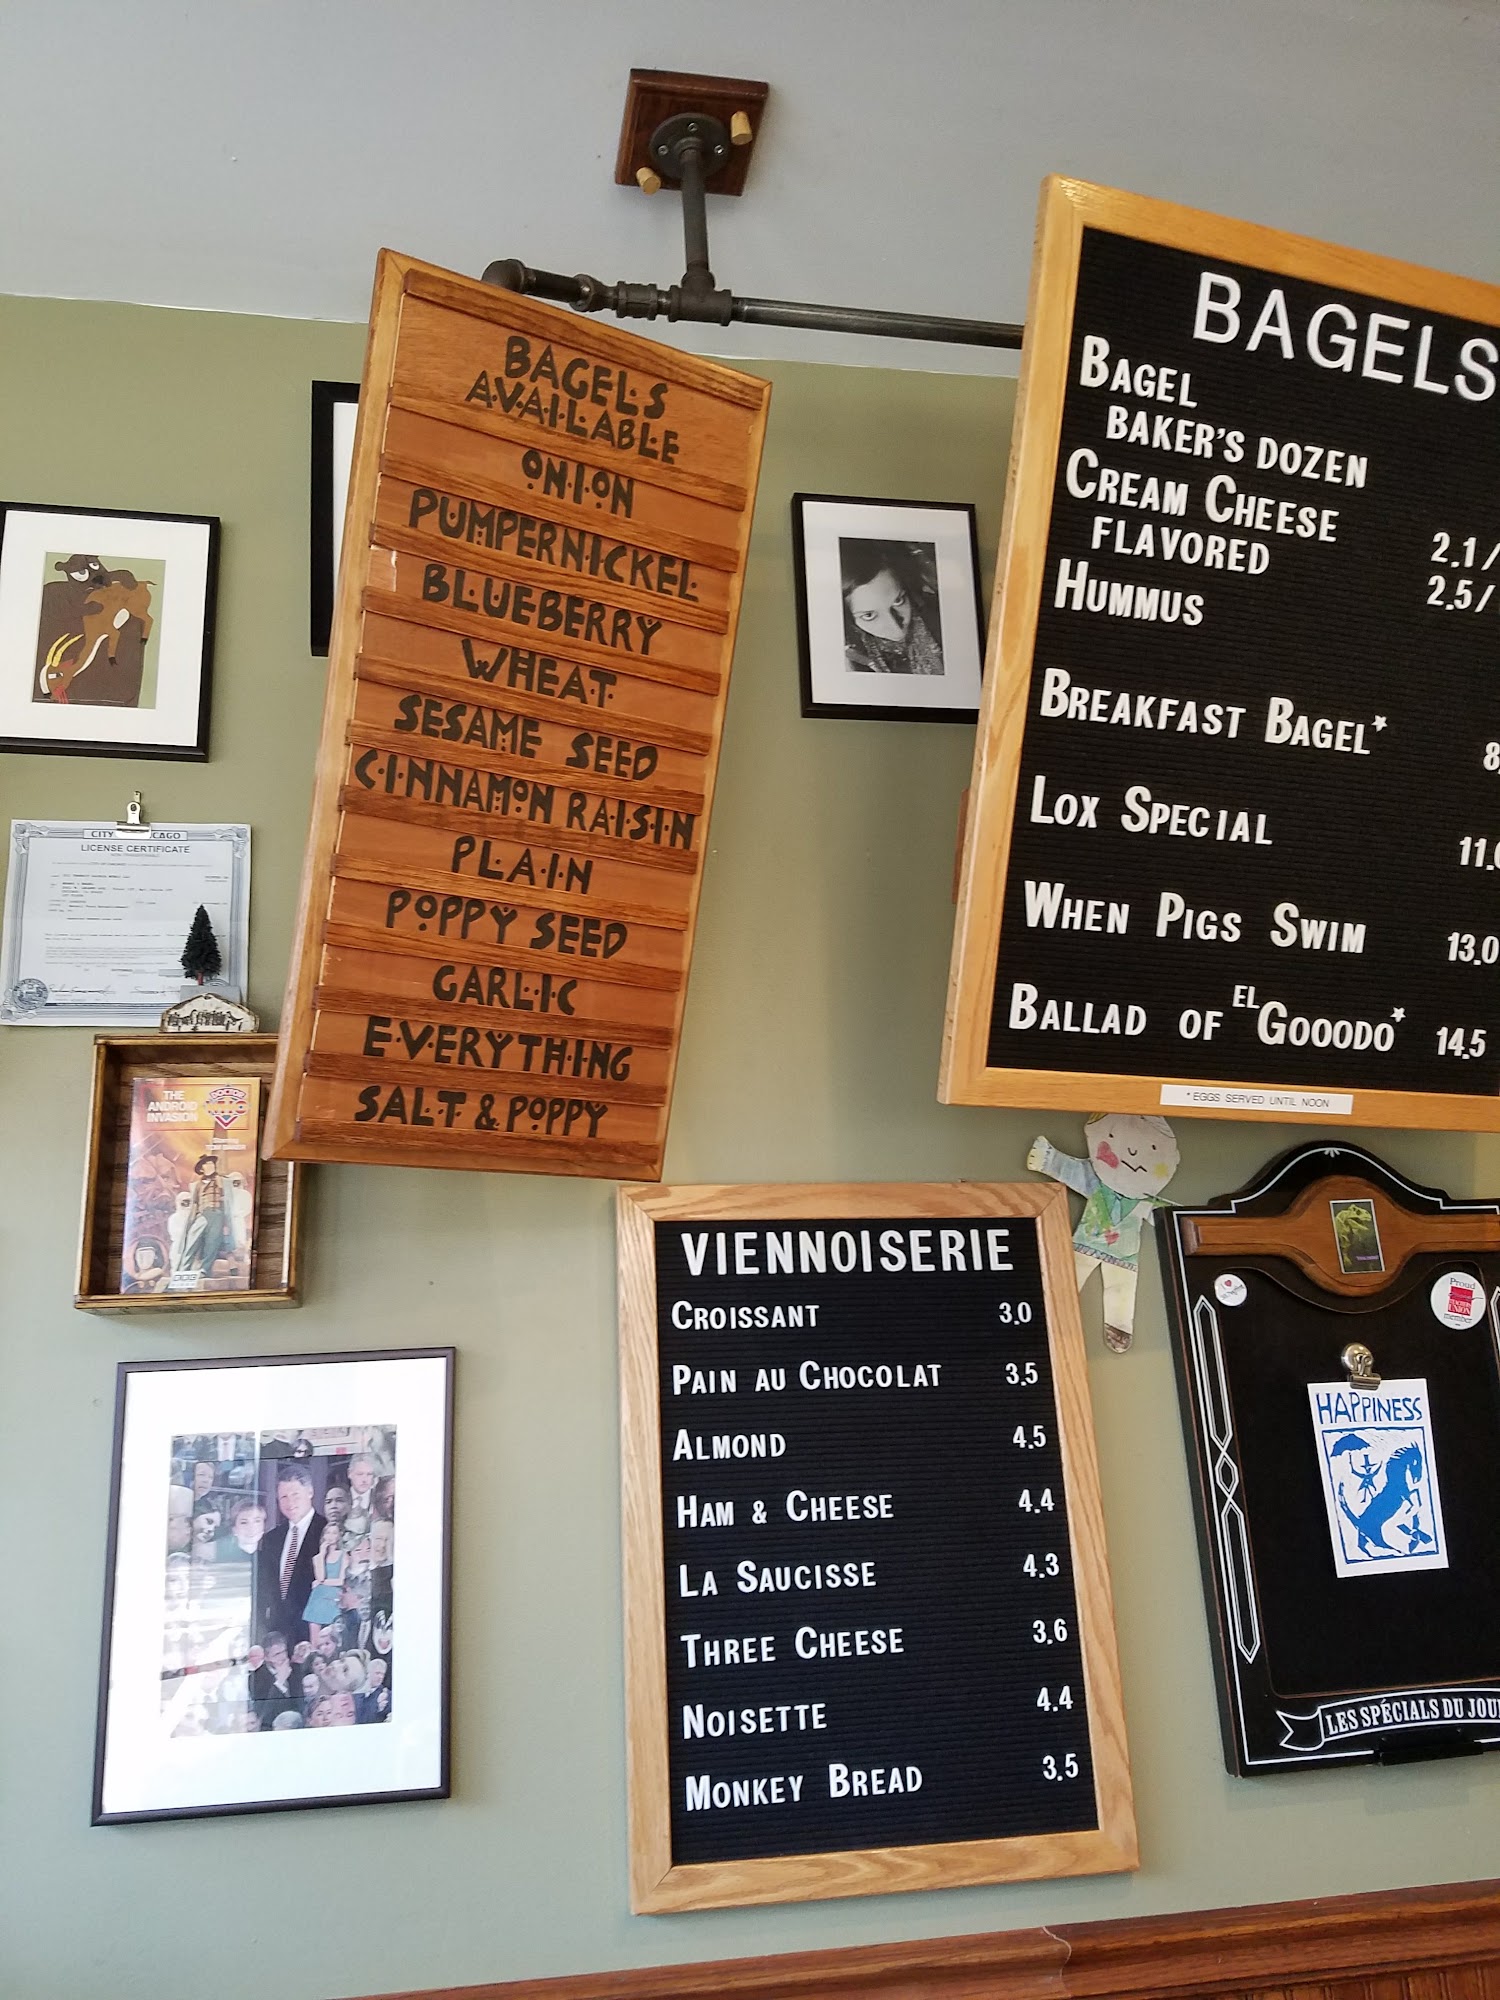 BAGELS
AVAILABLE
ONION
PUMPERNICKEL
BLUEBERRY
WHEAT
SESAME SEED
CINNAMON RAISIN
PLAIN
POPPY SEED
GARLIC
EVERYTHING
SALT & POPPY
BAGELS
BAGEL
BAKER'S DOZEN
CREAM CHEESE 2.1/
FLAVORED 2.5/
HUMMUS
BREAKFAST BAGEL* 8
LOX SPECIAL 11.0
WHEN PIGS SWIM 13.0
BALLAD OF EL GOOODO* 14.5
*EGGS SERVED UNTIL NOON
LICENSE CERTIFICATE
THE
ANDROID
INVASION
DOCTOR
WHO
BBC
VIENNOISERIE
CROISSANT 3.0
PAIN AU CHOCOLAT 3.5
ALMOND 4.5
HAM & CHEESE 4.4
LA SAUCISSE 4.3
THREE CHEESE 3.6
NOISETTE 4.4
MONKEY BREAD 3.5
Proud
TEACHERS
UNION
member
HAPPINESS
LES SPÉCIALS DU JOU